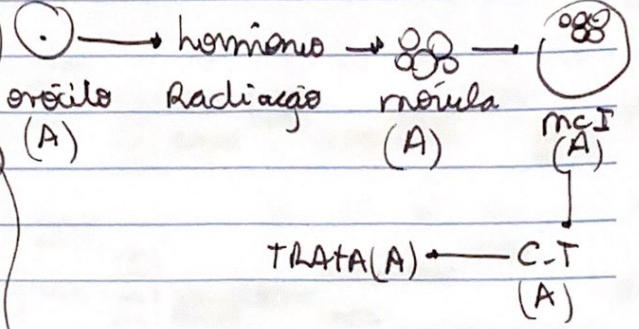 hormônio
ovócito Radiação mórula mcI
(A) (A) (A)
TRATA(A) C-T
(A)